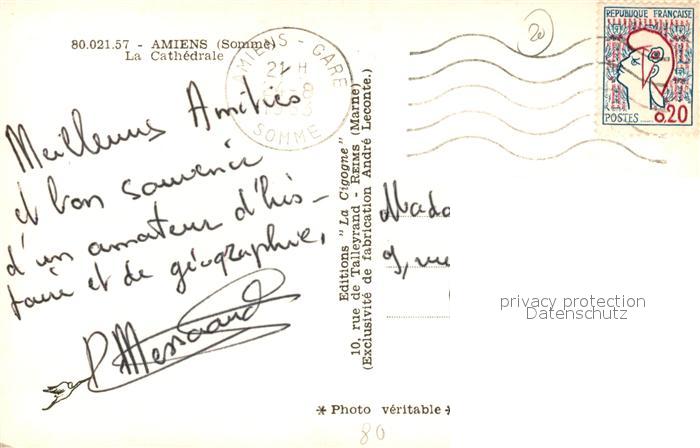 80.021.57 - AMIENS (Somme)
La Cathédrale
AMIENS - GARE
21 H
SOMME
20
REPUBLIQUE FRANÇAISE
POSTES 0.20
Meilleures Amitiés
et bon souvenir
d'un amateur d'his-
toire et de géographie,
Editions "La Cigogne"
10, rue de Talleyrand - REIMS (Marne)
(Exclusivité de fabrication André Leconte.)
Mada
9, rue
privacy protection
Datenschutz
* Photo véritable *
80